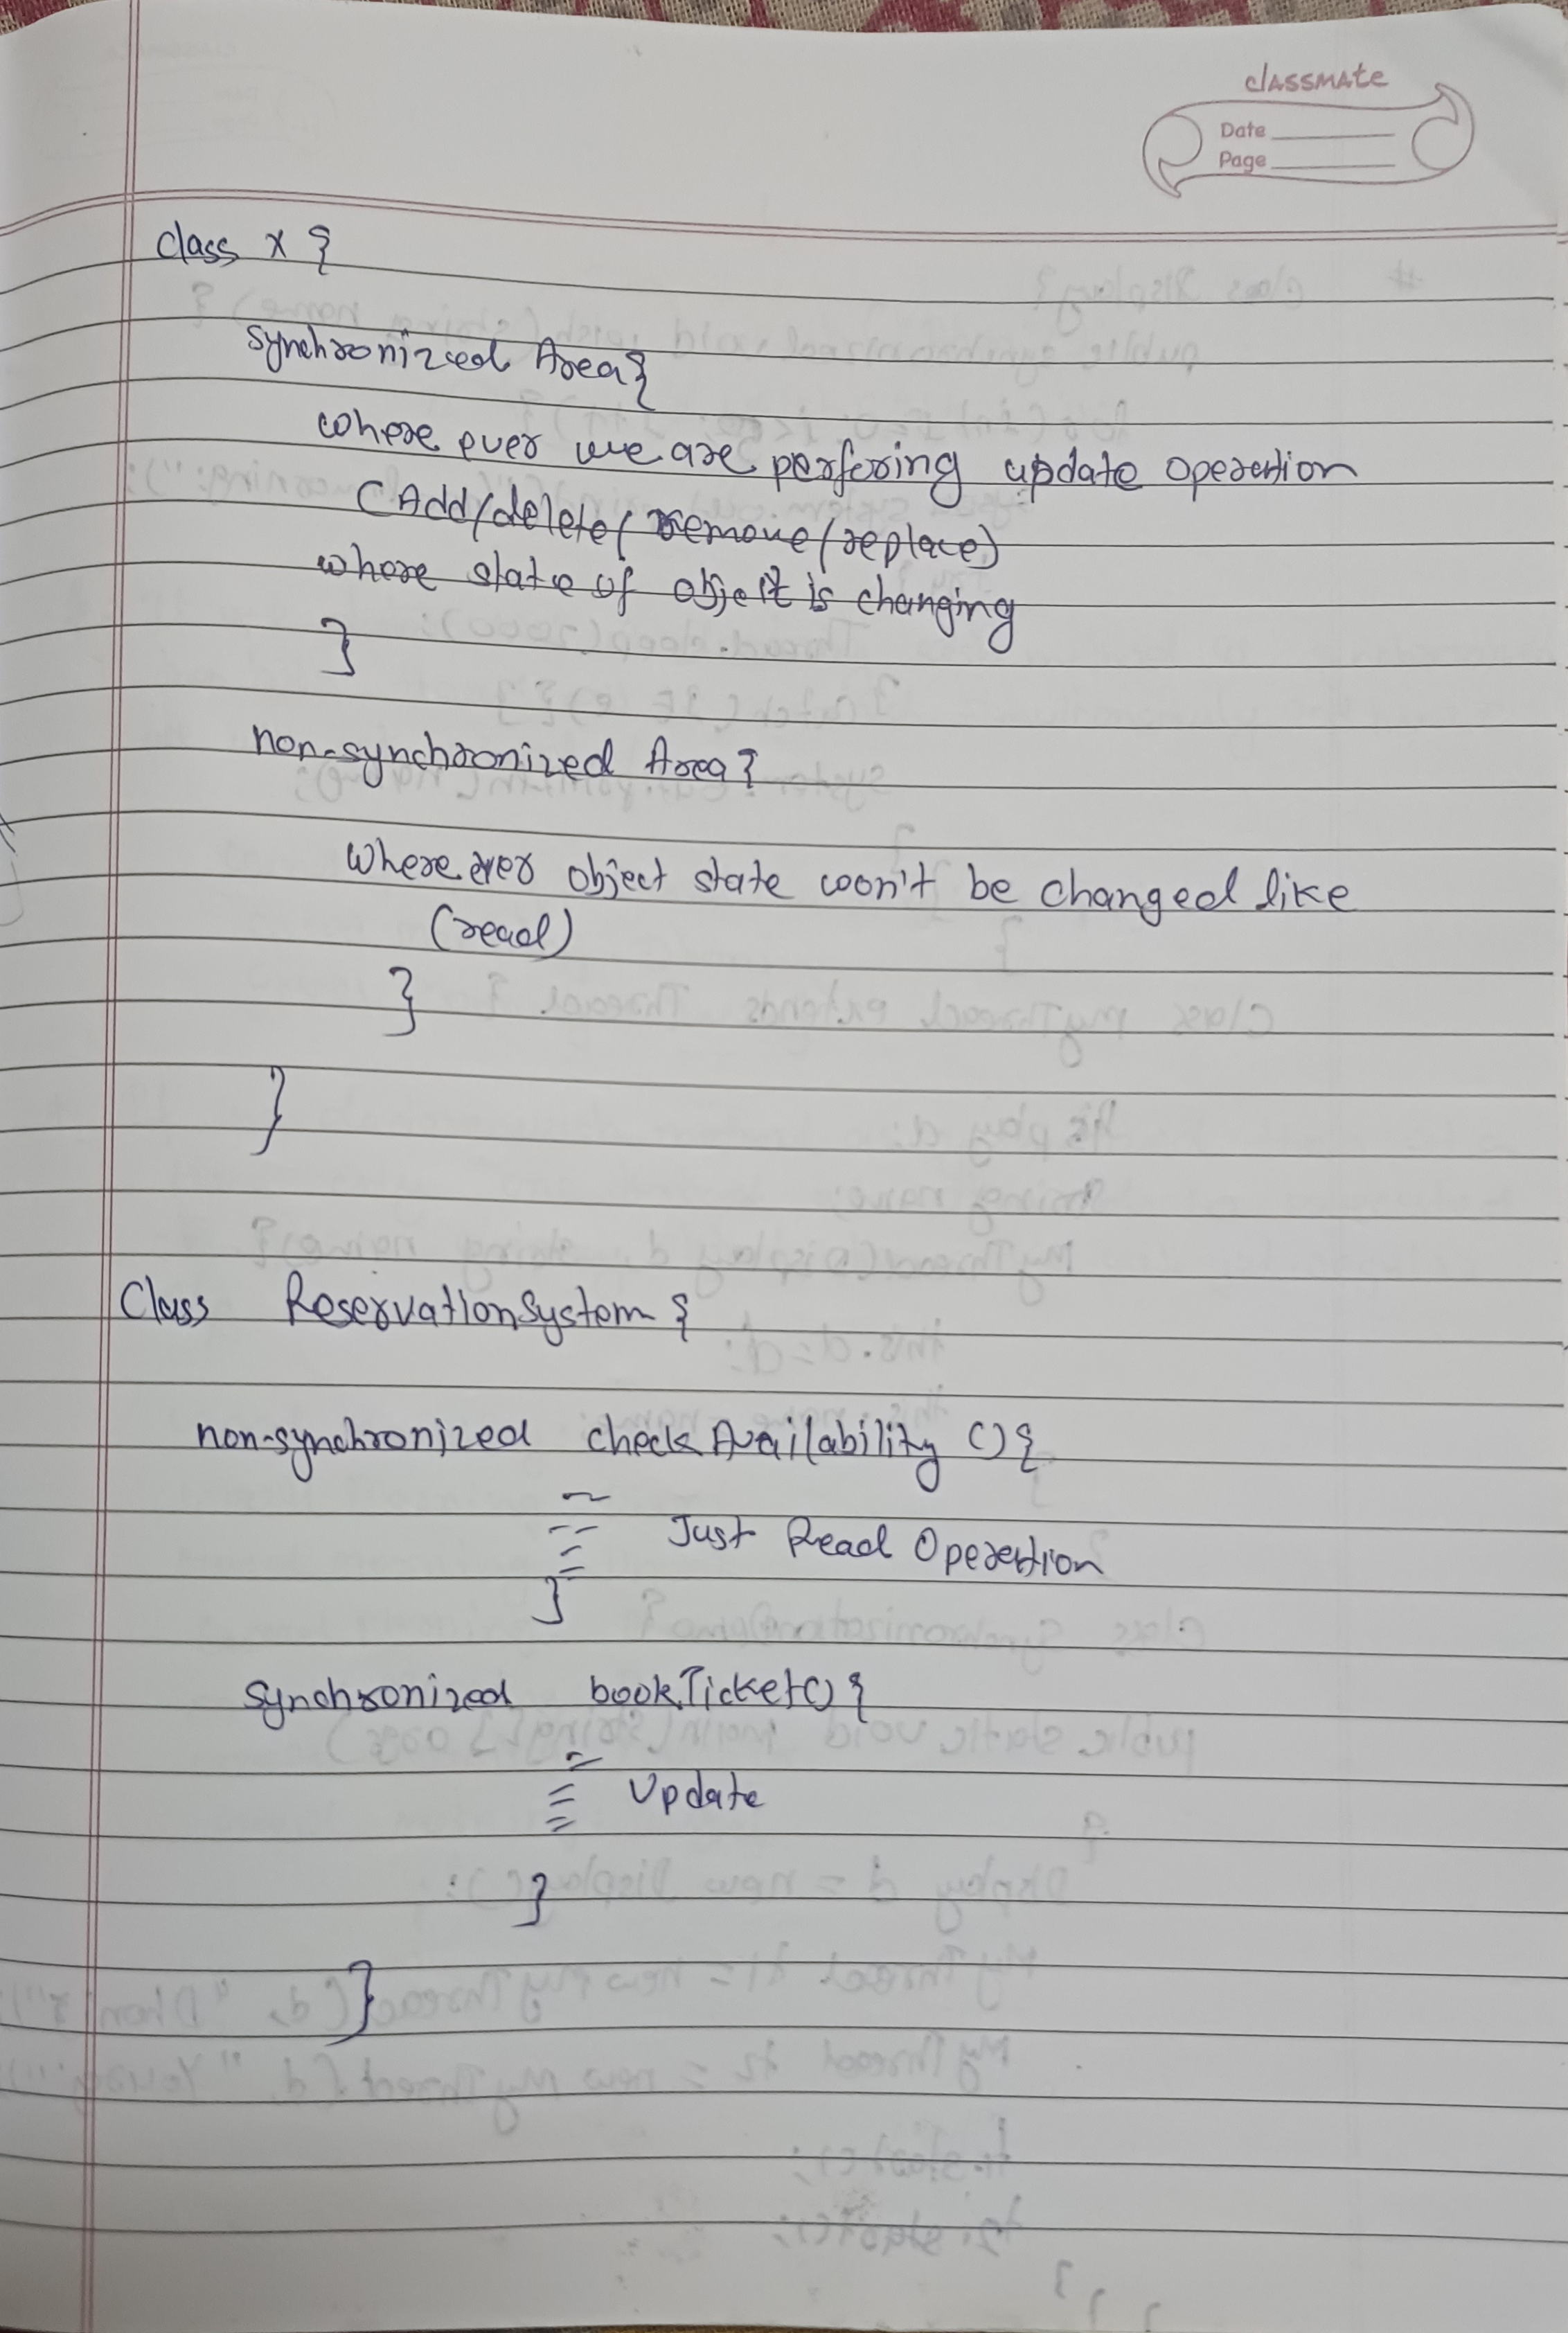 classmate
Date
Page
class X {
synchronized Area {
where ever we are perforing update operation
(Add/delete/remove/replace)
where state of object is changing
}
non-synchronized Area {
where ever object state won't be changed like
(read)
}
}
Class ReservationSystem {
non-synchronized checkAvailability () {
Just Read Operation
}
synchronized bookTicket() {
Update
}
}